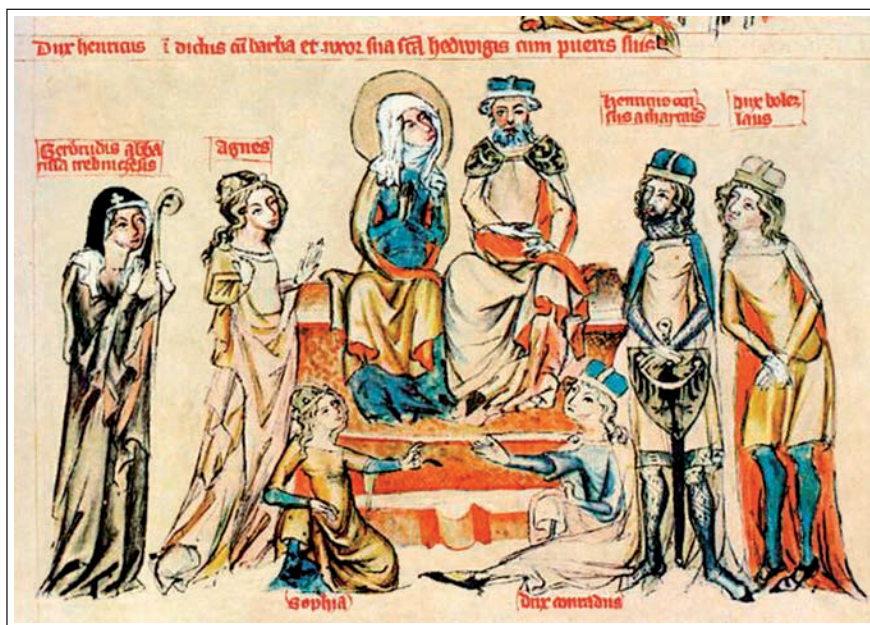 Dux henricus i dictus cū barba et uxor sua scā hedwigis cum pueris suis
Gerdrudis abba
tissa trebnicēsis
Agnes
henricus occi
dux bolez
laus
Sophia
dux conradus